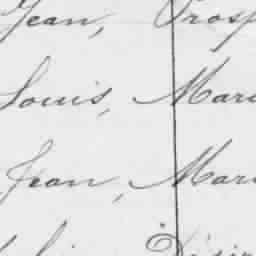 Jean, Prosp
Louis, Mari
Jean, Mari
Désir